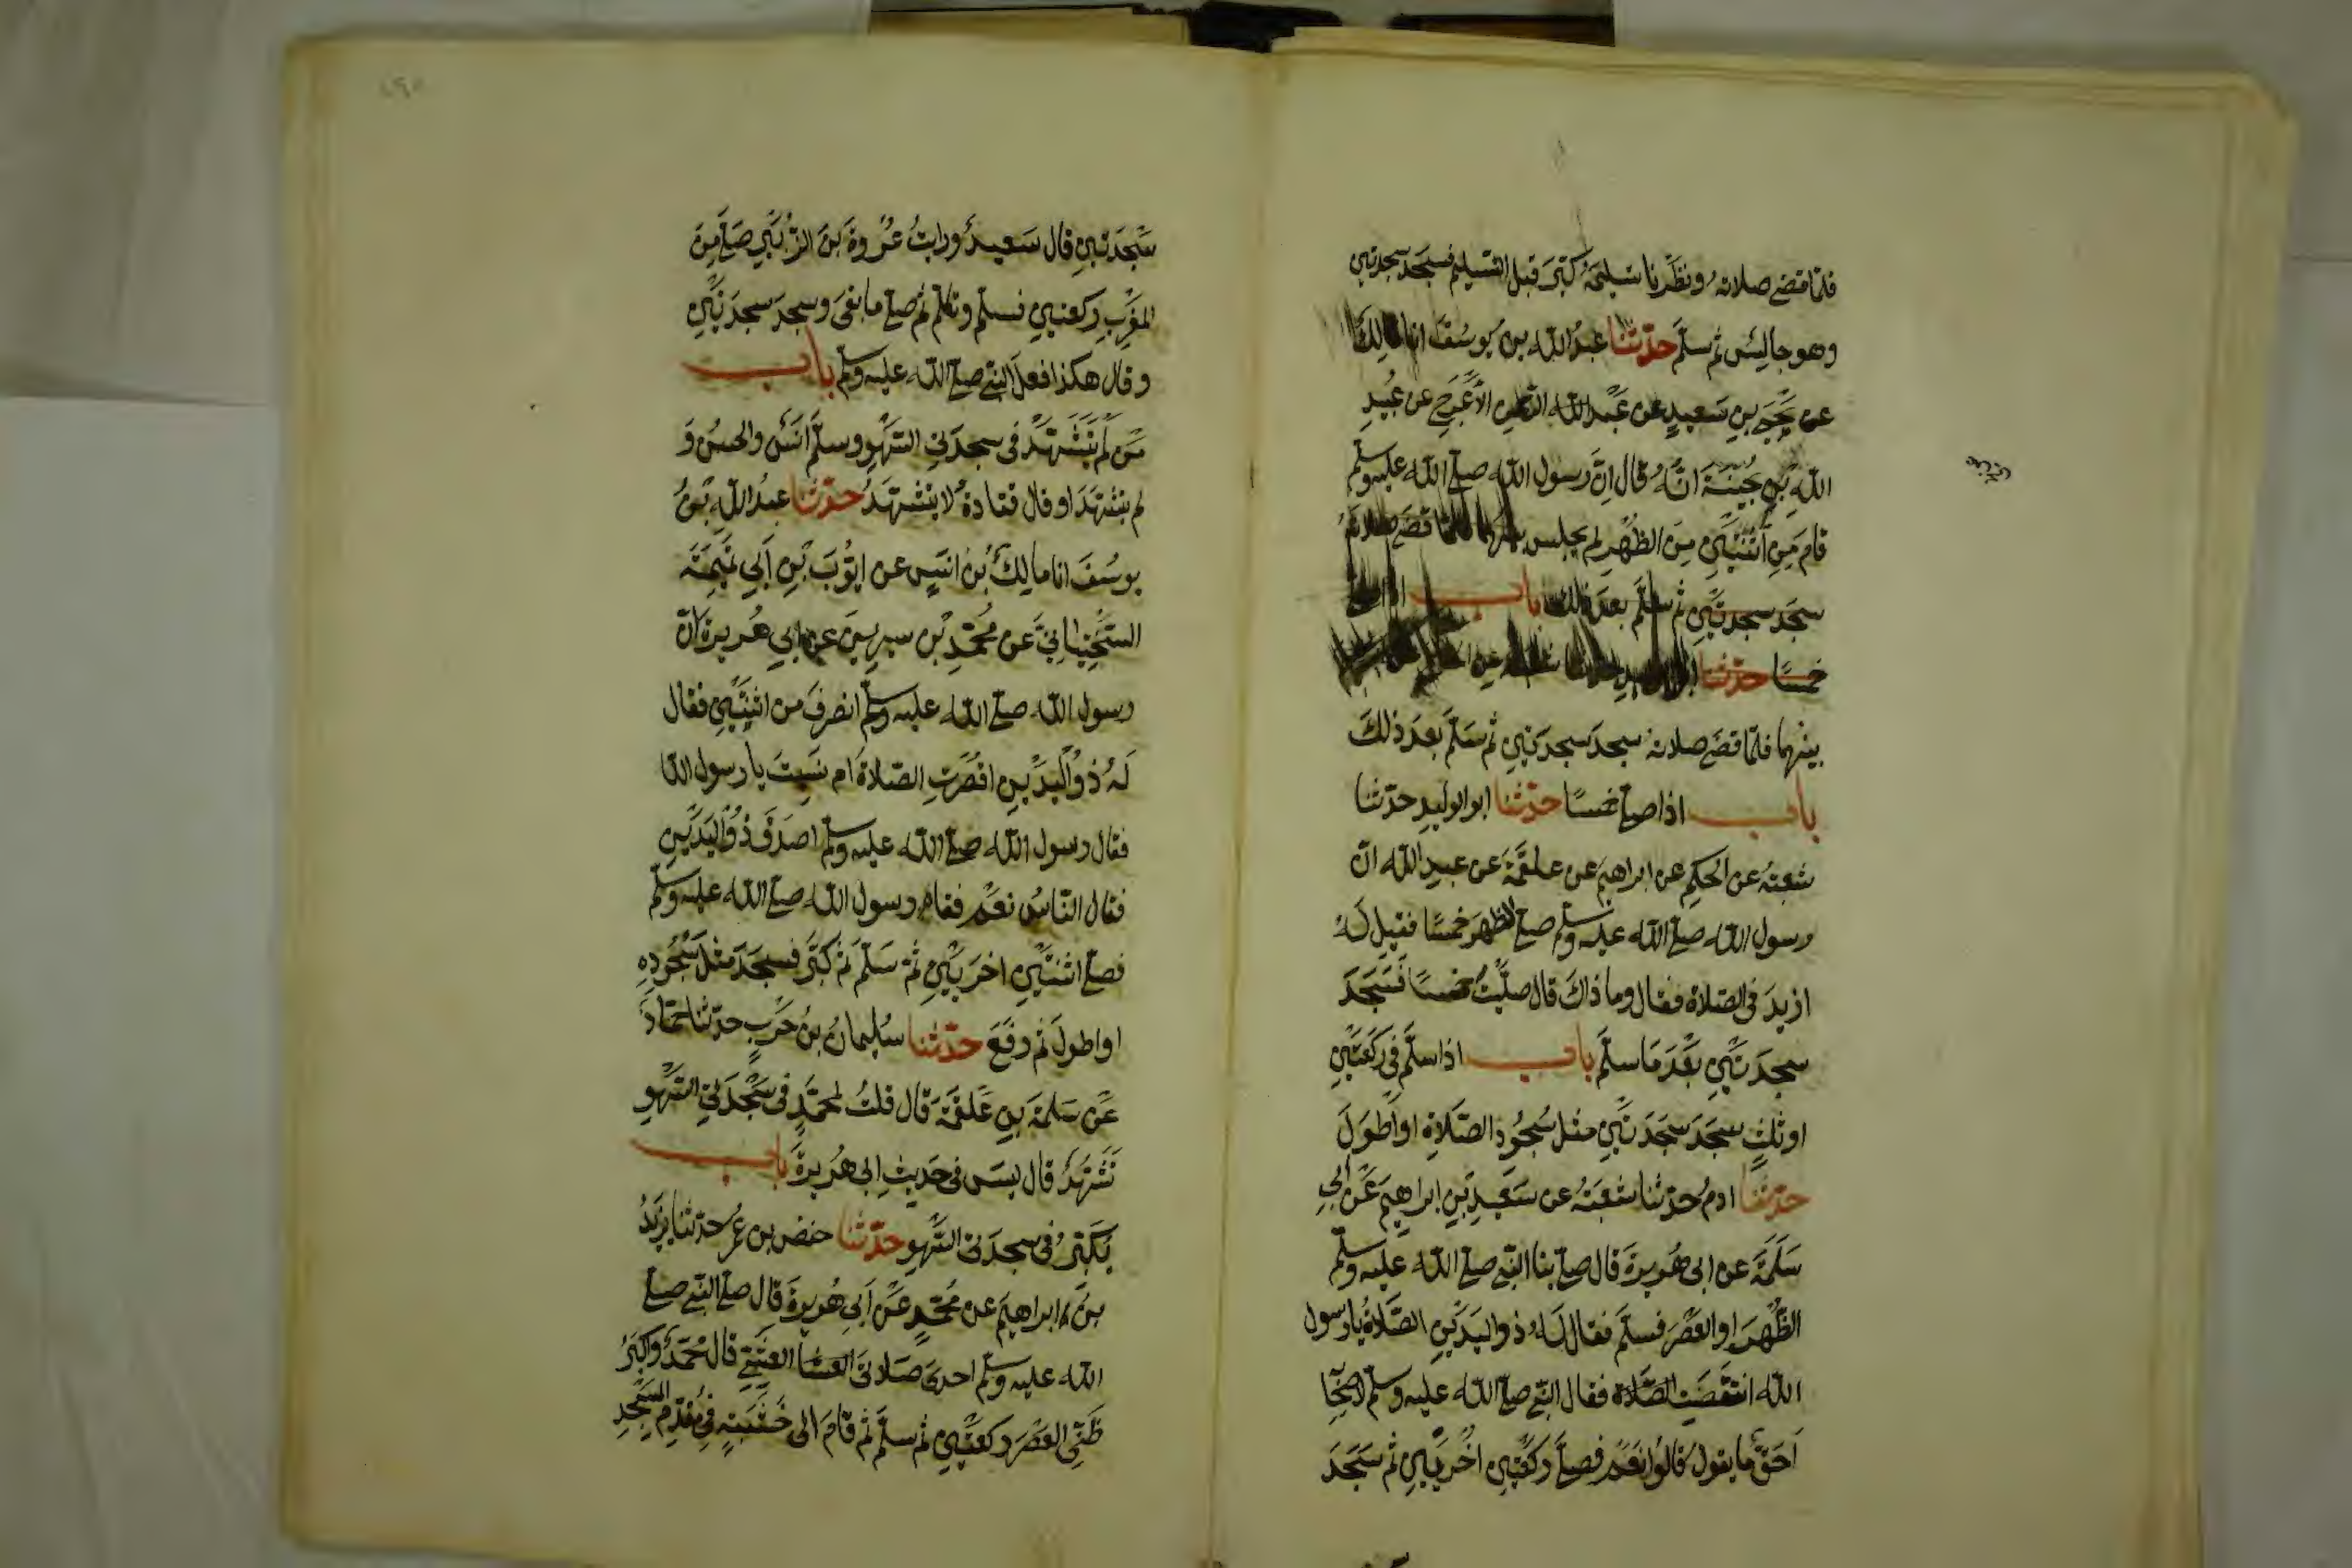 فلما قضى صلاته ونظرنا تسليمه كبر قبل التسليم فسجد سجدتين
وهو جالس ثم سلم حدثنا عبد الله بن يوسف انا مالك
عن يحيى بن سعيد عن عبد الرحمن الاعرج عن عبد
الله بن بحينة انه قال ان رسول الله صلى الله عليه وسلم
قام من اثنتين من الظهر لم يجلس بينهما فلما قضى صلاته
سجد سجدتين ثم سلم بعد ذلك باب اذا صلى
خمسا حدثنا
بينهما فلما قضى صلاته سجد سجدتين ثم سلم بعد ذلك
باب اذا صلى خمسا حدثنا ابو الوليد حدثنا
شعبة عن الحكم عن ابراهيم عن علقمة عن عبد الله ان
رسول الله صلى الله عليه وسلم صلى الظهر خمسا فقيل له
ازيد في الصلاة فقال وما ذاك قال صليت خمسا فسجد
سجدتين بعد ما سلم باب اذا سلم في ركعتين
او ثلث سجد سجدتين مثل سجود الصلاة او اطول
حدثنا ادم حدثنا شعبة عن سعيد بن ابراهيم عن ابي
سلمة عن ابي هريرة قال صلى بنا النبي صلى الله عليه وسلم
الظهر او العصر فسلم فقال له ذو اليدين الصلاة يا رسول
الله انقصت الصلاة فقال النبي صلى الله عليه وسلم لاصحابه
احق ما يقول قالوا نعم فصلى ركعتين اخريين ثم سجد
سجدتين قال سعيد ورايت عروة بن الزبير صلى من
المغرب ركعتين فسلم وتكلم ثم صلى ما بقى وسجد سجدتين
وقال هكذا فعل النبي صلى الله عليه وسلم باب
من لم يتشهد في سجدتي السهو وسلم انس والحسن و
لم يتشهدا وقال قتادة لا يتشهد حدثنا عبد الله بن
يوسف انا مالك بن انس عن ايوب بن ابي تميمة
السختياني عن محمد بن سيرين عن ابي هريرة ان
رسول الله صلى الله عليه وسلم انصرف من اثنتين فقال
له ذو اليدين اقصرت الصلاة ام نسيت يا رسول الله
فقال رسول الله صلى الله عليه وسلم اصدق ذو اليدين
فقال الناس نعم فقام رسول الله صلى الله عليه وسلم
فصلى اثنتين اخريين ثم سلم ثم كبر فسجد مثل سجوده
او اطول ثم رفع حدثنا سليمان بن حرب حدثنا حماد
عن سلمة بن علقمة قال قلت لمحمد في سجدتي السهو
تشهد قال ليس في حديث ابي هريرة باب
يكبر في سجدتي السهو حدثنا حفص بن عمر حدثنا يزيد
بن ابراهيم عن محمد عن ابي هريرة قال صلى النبي صلى
الله عليه وسلم احدى صلاتي العشا العشي قال محمد واكبر
ظني العصر ركعتين ثم سلم ثم قام الى خشبة في مقدم المسجد